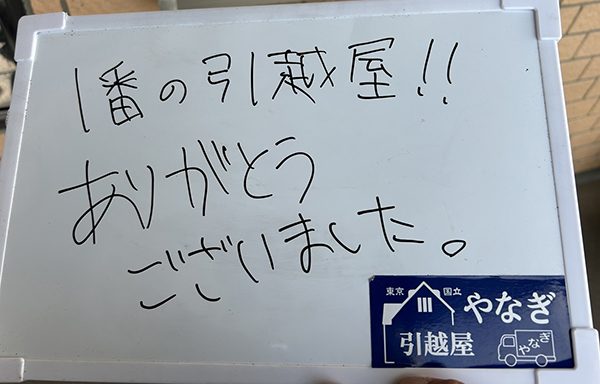 1番の引越屋!!
ありがとう
ございました。
東京 国立
やなぎ
引越屋
やなぎ